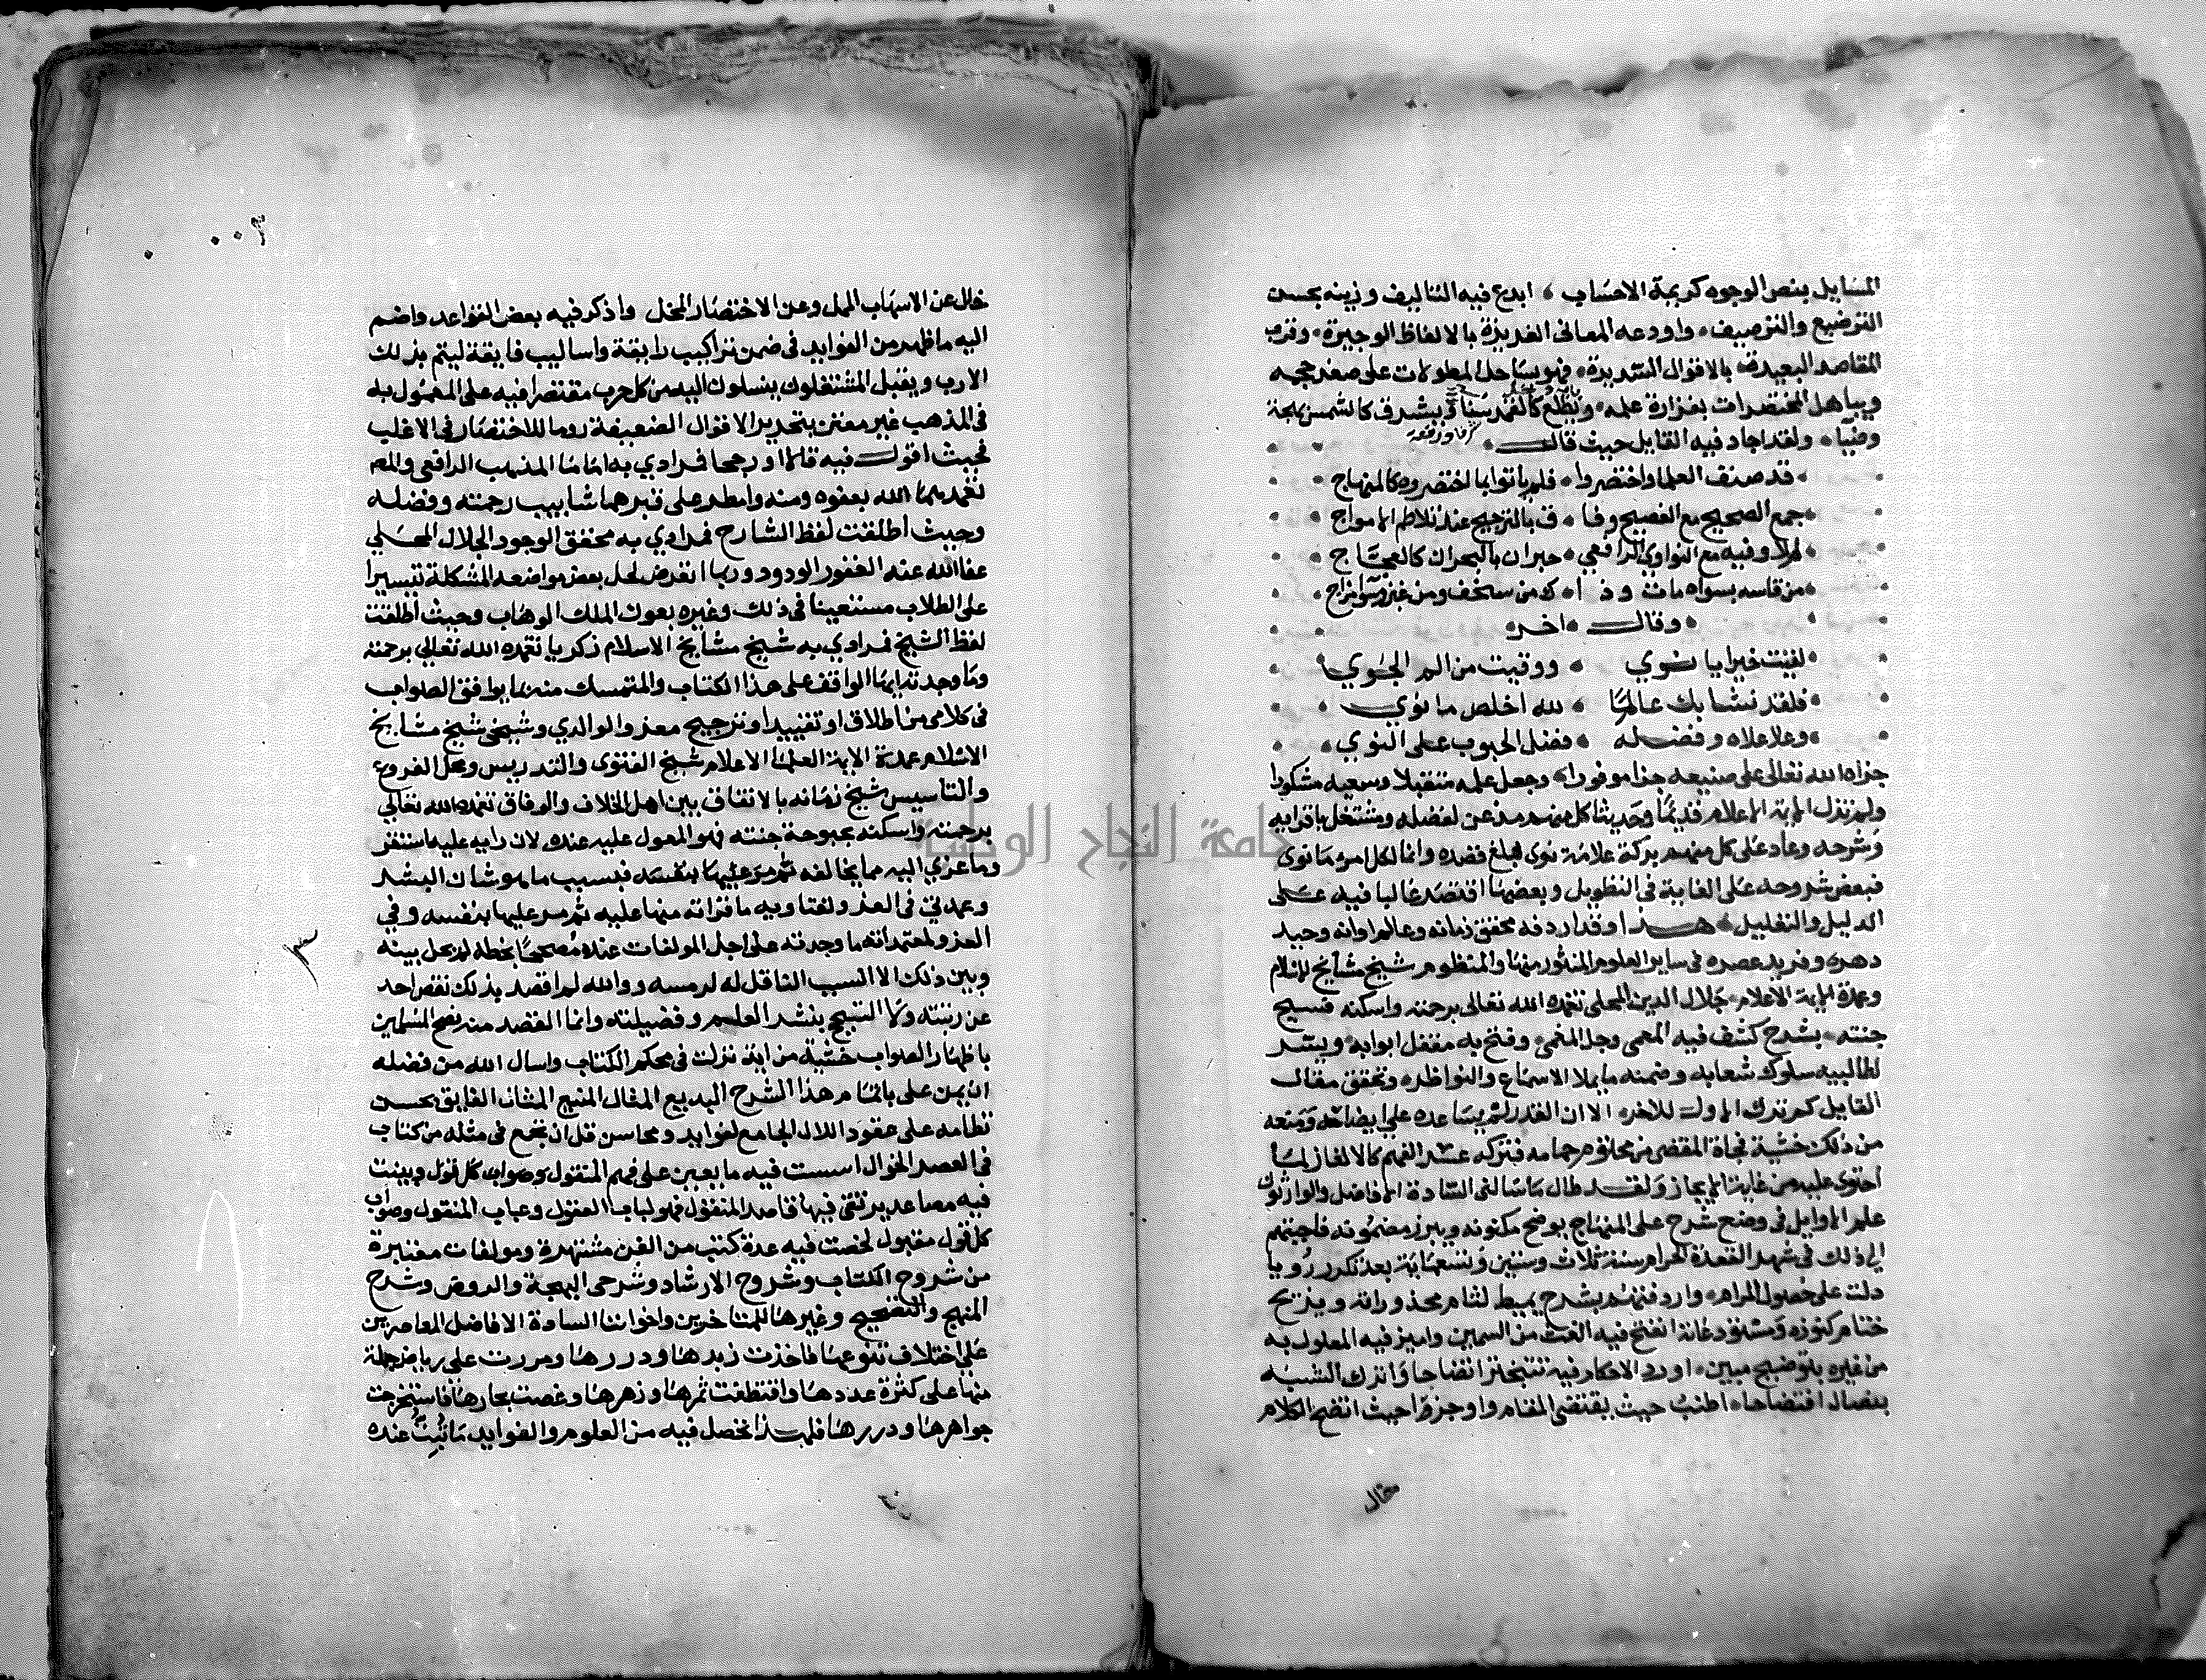 المسايل بنص الوجوه كريمة الاحساب ابدع فيه التاليف وزينه بحسن
الترصيع والترصيف واودعه المعاني الغزيرة بالالفاظ الوجيزة وقرب
المقاصد البعيدة بالاقوال السديدة فهو يساجل المطولات على صغر حجمه
ويباهل المختصرات بغزارة علمه ويطلع كالقمر سناء ويشرق كالشمس بهجة
وضيآء ولقد اجاد فيه القايل حيث قال
قد صنف العلما واختصروا فلم ياتوا بما اختصروه كالمنهاج
جمع الصحيح مع الفصيح وفا ق بالترجيح عند تلاطم الامواج
لم لا وفيه مع النواوي الرافعي حبران بل بحران كالعجاج
من قاسه بسواه مات وذا ك من سخف ومن غبن وسو مزاج
وقال اخر
لقيت خيرا يا نوي ووقيت من الم الجوي
فلقد نشا بك عالم لله اخلص ما نوي
وعلا علاه وفضله فضل الحبوب على النوي
جزاه الله تعالى على صنيعه جزا موفورا وجعل عمله متقبلا وسعيه مشكورا
ولم تزل الايمة الاعلام قديما وحديثا كل منهم مذعن لفضله ومشتغل باقرايه
وشرحه وعاد على كل منهم بركة علامة نوى فبلغ قصده وانما لكل امرء ما نوى
فبعض شروحه على الغاية في التطويل وبعضها اقتصر غالبا فيه على
الدليل والتعليل هذا وقد اردفه محقق زمانه وعالم اوانه وحيد
دهره وفريد عصره في ساير العلوم المنثور منها والمنظوم شيخ مشايخ الاسلام
وعمدة الايمة الاعلام جلال الدين المحلي تغمده الله تعالى برحمته واسكنه فسيح
جنته بشرح كشف فيه المعمى وجلا المغمى وفتح به مقفل ابوابه ويسر
لطالبيه سلوك شعابه وضمنه ما يملا الاسماع والنواظر وتحقق مقال
القايل كم ترك الاول للاخر الا ان القدر لم يساعده على ايضاحه ومنعه
من ذلك خشية فجاة المقضي من محتوم حمامه فتركه عسر الفهم كالالغاز لما
احتوى عليه من غاية الايجاز ولقد طال ما سالني السادة الافاضل والوارثون
علم الاوايل في وضع شرح على المنهاج يوضح مكنونه ويبرز مضمونه فاجبتهم
الى ذلك في شهر القعدة الحرام سنة ثلاث وستين وتسعماية بعد تكرر رويا
دلت على حصول المرام واردفتهم بشرح يميط لثام مخدراته ويزيح
ختام كنوزه ومستودعاته انقح فيه الغث من السمين واميز فيه المعلول به
من غيره بتوضيح مبين اورد الاحكام فيه تتبختر اتضاحا واترك الشبه
بتضال افتضاحا اطنب حيث يقتضي المقام واوجز حيث اتضح الكلام
مقال
خال عن الاسهاب الممل وعن الاختصار المخل واذكر فيه بعض القواعد واضم
اليه ما ظهر من الفوايد في ضمن تراكيب رايقة واساليب فايقة ليتم بذلك
الارب ويقبل المشتغلون ينسلون اليه من كل حدب مقتصرا فيه على المعمول به
في المذهب غير معتن بتحرير الاقوال الضعيفة روما للاختصار في الاغلب
فحيث اقول فيه قالا او رجحا فمرادي به اماما المذهب الرافعي والمص
تغمدهما الله بعفوه ومنه وامطر على قبرهما شابيب رحمته وفضله
وحيث اطلقت لفظ الشارح فمرادي به محقق الوجود الجلال المحلي
عفا الله عنه الغفور الودود وربما اتعرض لحل بعض مواضعه المشكلة تيسيرا
على الطلاب مستعينا في ذلك وغيره بعون الملك الوهاب وحيث اطلقت
لفظ الشيخ فمرادي به شيخ مشايخ الاسلام زكريا تغمده الله تعالى برحمته
وما وجدته ايها الواقف على هذا الكتاب والمتمسك منه بما يوافق الصواب
في كلامي من اطلاق او تقييد او ترجيح معزو الوالدي وشيخي شيخ مشايخ
الاسلام عمدة الايمة العلما الاعلام شيخ الفتوى والتدريس ومحل الفروع
والتاسيس شيخ زمانه بالاتفاق بين اهل الخلاف والوفاق تغمده الله تعالى
برحمته واسكنه بحبوحة جنته فهو المعول عليه عنده لان رايه عليه استقر
وما عزي اليه مما يخالفه ثم مر عليها بنفسه فبسبب ما هو شان البشر
وعمدتي في العزو لفتاويه ما قراته منها عليه ثم مر عليها بنفسه وفي
العزو لمعتمداته ما وجدته على اجل المولفات عنده مصححا بخطه لم يحل بينه
وبين ذلك الا انسب الناقل له لرمسه ووالله لم اقصد بذلك نقص احد
عن رتبته ولا التبجح بنشر العلم وفضيلته وانما القصد منه نصح المسلمين
باظهار الصواب خشية من اية نزلت في محكم الكتاب واسال الله من فضله
ان يمن على باتمام هذا الشرح البديع المقال المنيع المثال الفايق بحسن
نظامه على عقود اللال الجامع لفوايد ومحاسن قل ان تجمع في مثله من كتاب
في العصر الخوال اسست فيه ما يعين على فهم المنقول وصواب كل قول وبينت
فيه مصاعد يرتقي فيها قاصد المنقول فهو لباب العقول وعباب المنقول وصواب
كل قول مقبول لخصت فيه عدة كتب من الفن مشتهرة ومولفات معتبرة
من شروح الكتاب وشروح الارشاد وشرحى البهجة والروض وشرح
المنهج والتصحيح وغيرها للمتاخرين واخواننا السادة الافاضل المعاصرين
على اختلاف تنوعها فاخذت زبدها ودررها ومررت على رياض جملة
منها على كثرة عددها واقتطفت ثمرها وزهرها وغصت بحارها فاستخرجت
جواهرها ودررها فلهذا تحصل فيه من العلوم والفوايد ما تبت عنده